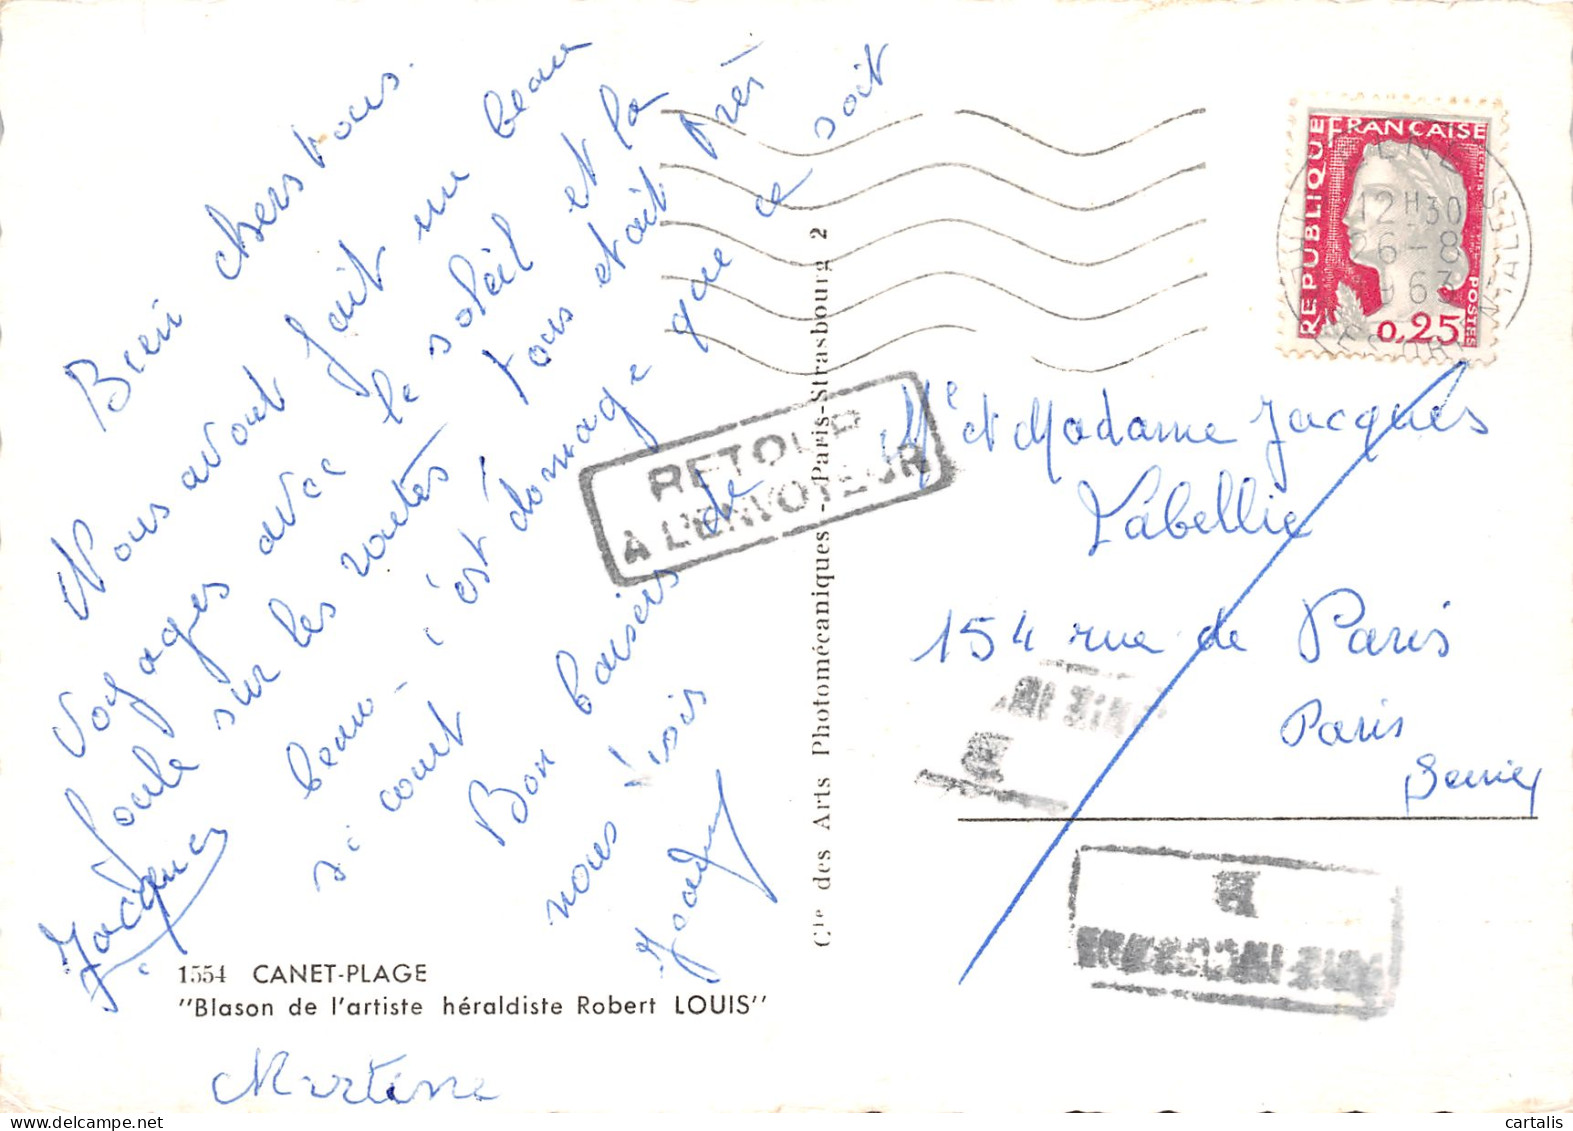 Bien chers tous.
Nous avont fait un beau
voyages avec le soleil et la
foule sur les routes tous etait très
beau - c'est domage que ce soit
si court
Bon baisers de
nous trois
Jacques
Martine
1554 CANET-PLAGE
"Blason de l'artiste héraldiste Robert LOUIS"
Cie des Arts Photomécaniques - Paris-Strasbourg 2
RETOUR
A L'ENVOYEUR
REPUBLIQUE FRANÇAISE
POSTES
0,25
12H30
26-8
1963
Mr et Madame Jacques
Labellie
154 rue de Paris
Paris
Seine
cartalis